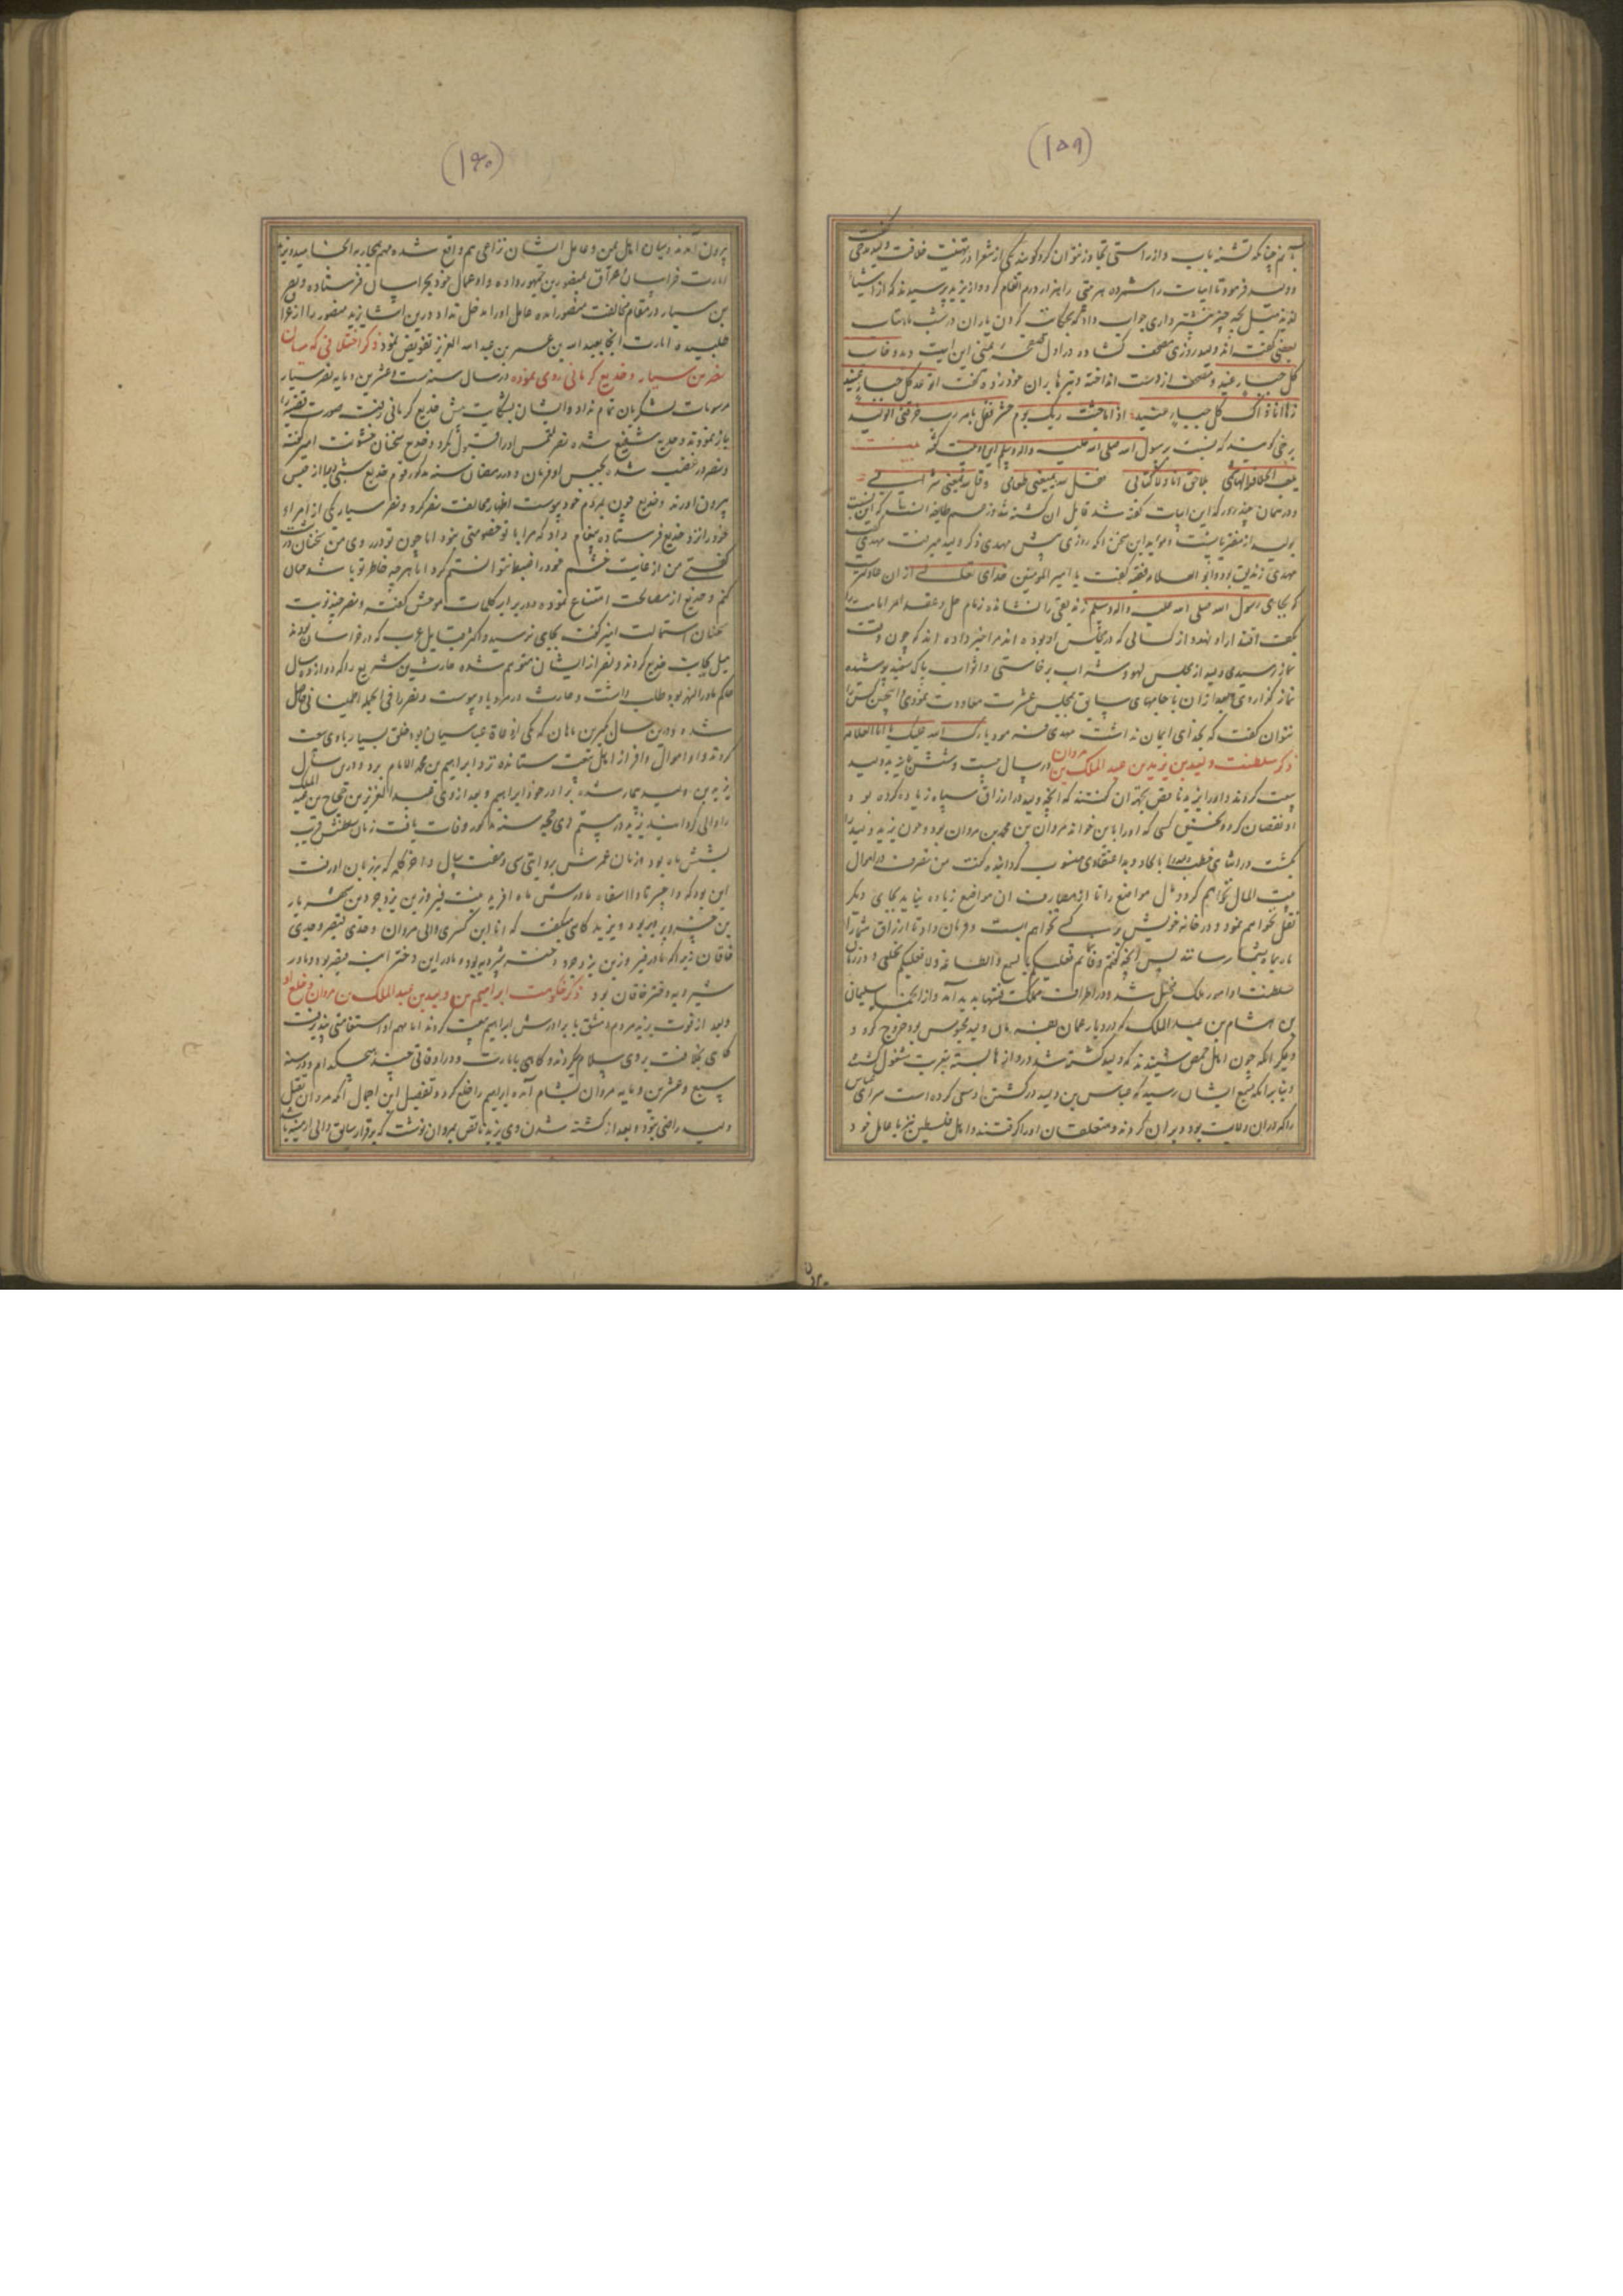 (۱۵۹)
آنم چنانکه تشنه بآب و از راستی تجاوز نتوان کرد گویند یکی از شعرا در تهنیت خلافت ولید مدحی گفت
و ولید فرمود تا ابیات را شمرده هر بیتی را هزار درم انعام کرد و از یزید پرسیدند که از اشیاء
لذیذه میل بچه چیز بیشتر داری جواب داد که بحکایت کردن یاران در شب ماهتاب
بعضی گفته اند ولید روزی مصحف گشاده در اول صفحه یمنی این آیت دید و خاب
کل جبار عنید و مصحف از دست انداخته و تیر باران خود زده گفت اتوعد کل جبار عنید
فها انا ذاک کل جبار عنید اذا ما جئت ربک یوم حشر فقل یا رب خرقنی الولید
برخی گویند که نسبت برسول الله صلی الله علیه واله وسلم این دو بیت گفته
بلا وحی اتاه ولا کتاب فقل لله یمنعنی طعامی وقل لله یمنعنی شرابی
و در همان چند روز که این ابیات گفته شد قایل آن کشته شد و زعم طایفه آنست که این نسبت
بولید از مفتریاتست و مؤید این سخن آنکه روزی پیش مهدی ذکر ولید میرفت مهدی گفت
مهدی زندیق بود و ابو العلاء فقیه گفت یا امیر المومنین خدای تعالی از آن عادلترست
که بجای رسول الله صلی الله علیه واله وسلم زندیقی را نشانده زمام حل و عقد امر امامت را
بکف اقتدار او نهد و از کسانی که در مجالس او بوده اند مرا خبر داده اند که چون وقت
نماز رسیدی ولید از مجلس لهو و شراب برخاستی و اثواب پاک سفید پوشیده
نماز گزاردی و بعد از آن با جامهای سابق بمجلس عشرت معاودت نمودی و اینچنین کس را
نتوان گفت که بخدای ایمان نداشت مهدی فرمود بارک الله علیک یا ابا العلاء
ذکر سلطنت ولید بن یزید بن عبد الملک بن مروان در سال بیست و شش با یزید ولید
بیعت کردند و او را یزید ناقص بجهة آن گفتند که آنچه ولید در ارزاق سپاه زیاده کرده بود
او نقصان کرد و نخستین کسی که او را باین خواند مروان بن محمد بن مروان بود و چون یزید ولید را
بکشت در اثنای خطبه ولید را بالحاد و بد اعتقادی منسوب گردانیده گفت من تصرف در اموال
بیت المال نخواهم کرد و مال مواضع را تا از مصارف آن مواضع زیاده نیاید بجای دیگر
نقل نخواهم نمود و در خانه خویش بر کسی نخواهم بست و فرمان داد تا ارزاق شما را
ماه بماه بشما رسانند پس آنچه گفتم وفا کنم فعلیکم بالسمع والطاعة ولا فعلیکم بخلعی و در زمان
سلطنت او امور ملک مختل شد و در اطراف مملکت فتنها پدید آمد و از آنجمله سلیمان
بن هشام بن عبد الملک که در دیار عمان بفرمان ولید محبوس بود خروج کرد و
دیگر آنکه چون اهل حمص شنیدند که ولید کشته شد دروازها بسته بتعزیت مشغول گشتند
و بنابر آنکه بسمع ایشان رسید که عباس بن ولید در کشتن او سعی کرده است سرای عباس
را که در آن ولایت بود ویران کردند و متعلقان او را گرفتند و اهل فلسطین نیز با عامل خود
(۱۶۰)
بیرون آمدند و میان اهل یمن و عامل ایشان نزاعی هم واقع شده مهم بمحاربه انجامید و یزید
امارت خراسان و عراق بمنصور بن جمهور داده و او عمال خود بخراسان فرستاده و نصر
بن سیار در مقام مخالفت منصور آمده عامل او را دخل نداد درین اثنا یزید منصور را از عراق
طلبیده امارت آنجا بعبد الله بن عمر بن عبد العزیز تفویض نمود ذکر اختلافی که میان
نصر بن سیار و خدیع کرمانی روی نموده در سال سنه ست و عشرین و مایه نصر سیار
مرسومات لشکریان تمام نداد و ایشان بشکایت پیش خدیع کرمانی رفته صورت قضیه را
باز نمودند و خدیع شفیع شده نصر ملتمس او را قبول نکرد و خدیع سخنان خشونت آمیز گفته
و نصر در غضب شده بحبس او فرمان داد و در رمضان سنه مذکور قوم خدیع شبی او را از حبس
بیرون آوردند و خدیع چون بمردم خود پیوست اظهار مخالفت نصر کرد و نصر سیار یکی از امراء
خود را نزد خدیع فرستاده پیغام داد که مرا با تو خصومتی نبود اما چون تو در روی من سخنان درشت
گفتی من از غایت خشم خود را ضبط نتوانستم کرد اما هر چه خاطر تو باشد چنان
کنم و خدیع از مصالحت امتناع نموده در برابر کلمات موحش گفت و نصر چند نوبت
سخنان استمالت آمیز گفت بجای نرسید و اکثر قبایل عرب که در خراسان بودند
میل بجانب خدیع کردند و نصر از ایشان متوهم شده حارث بن شریح را که دوازده سال
حاکم ماوراء النهر بود طلب داشت و حارث در مرو باو پیوست و نصر را فی الجمله اطمینانی حاصل
شد و درین سال بکیر بن ماهان که یکی از دعاة عباسیان بود خلق بسیار با وی بیعت
کردند و او اموال وافر از اهل بیعت ستانده نزد ابراهیم بن محمد الامام برد و درین سال
یزید بن ولید بیمار شده برادر خود ابراهیم و بعد از وی عبد العزیز بن حجاج بن عبد الملک
را والی گردانید یزید در بیستم ذی حجه سنه مذکور وفات یافت زمان سلطنتش قریب
بشش ماه بود و زمان عمرش بروایتی سی و هفت سال و آخر کلمه که بر زبان او رفت
این بود که وا حسرتاه وا اسفاه مادرش ماه آفرید بنت فیروز بن یزدجرد بن شهریار
بن خسرو پرویز بود و یزید گاهی میگفت که انا ابن کسری وابی مروان وجدی قیصر وجدی
خاقان زیرا که مادر فیروز بن یزدجرد دختر شیرویه بود و مادر این دختر از نسل قیصر بود و مادر
شیرویه دختر خاقان بود ذکر حکومت ابراهیم بن ولید بن عبد الملک بن مروان و خلع او
و بعد از فوت یزید مردم دمشق با برادرش ابراهیم بیعت کردند اما مهم او استقامتی نپذیرفت
گاهی بخلافت بر وی سلام میکردند و گاهی بامارت و در اوقاتی چند هیچکدام و در سنه
سبع و عشرین و مایه مروان بشام آمده ابراهیم را خلع کرد و تفصیل این اجمال آنکه مروان بقتل
ولید راضی نبود و بعد از کشته شدن وی یزید ناقص بمروان نوشت که برقرار سابق والی ارمنیه باش